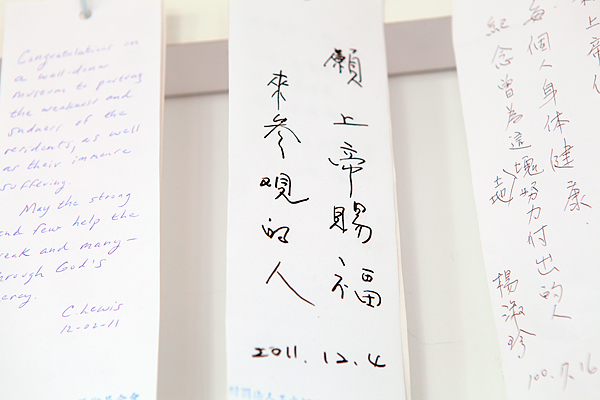 Congratulations on
a well-done
museum to portray
the weakness and
sadness of the
residents, as well
as their immense
suffering.
May the strong
and few help the
weak and many—
through God's
mercy.
C. Lewis
12-02-11
願上帝賜福
來參觀的人
2011.12.4
上帝
每個人身体健康
紀念曾為這塊地努力付出的人
楊淑珍
100.7.16